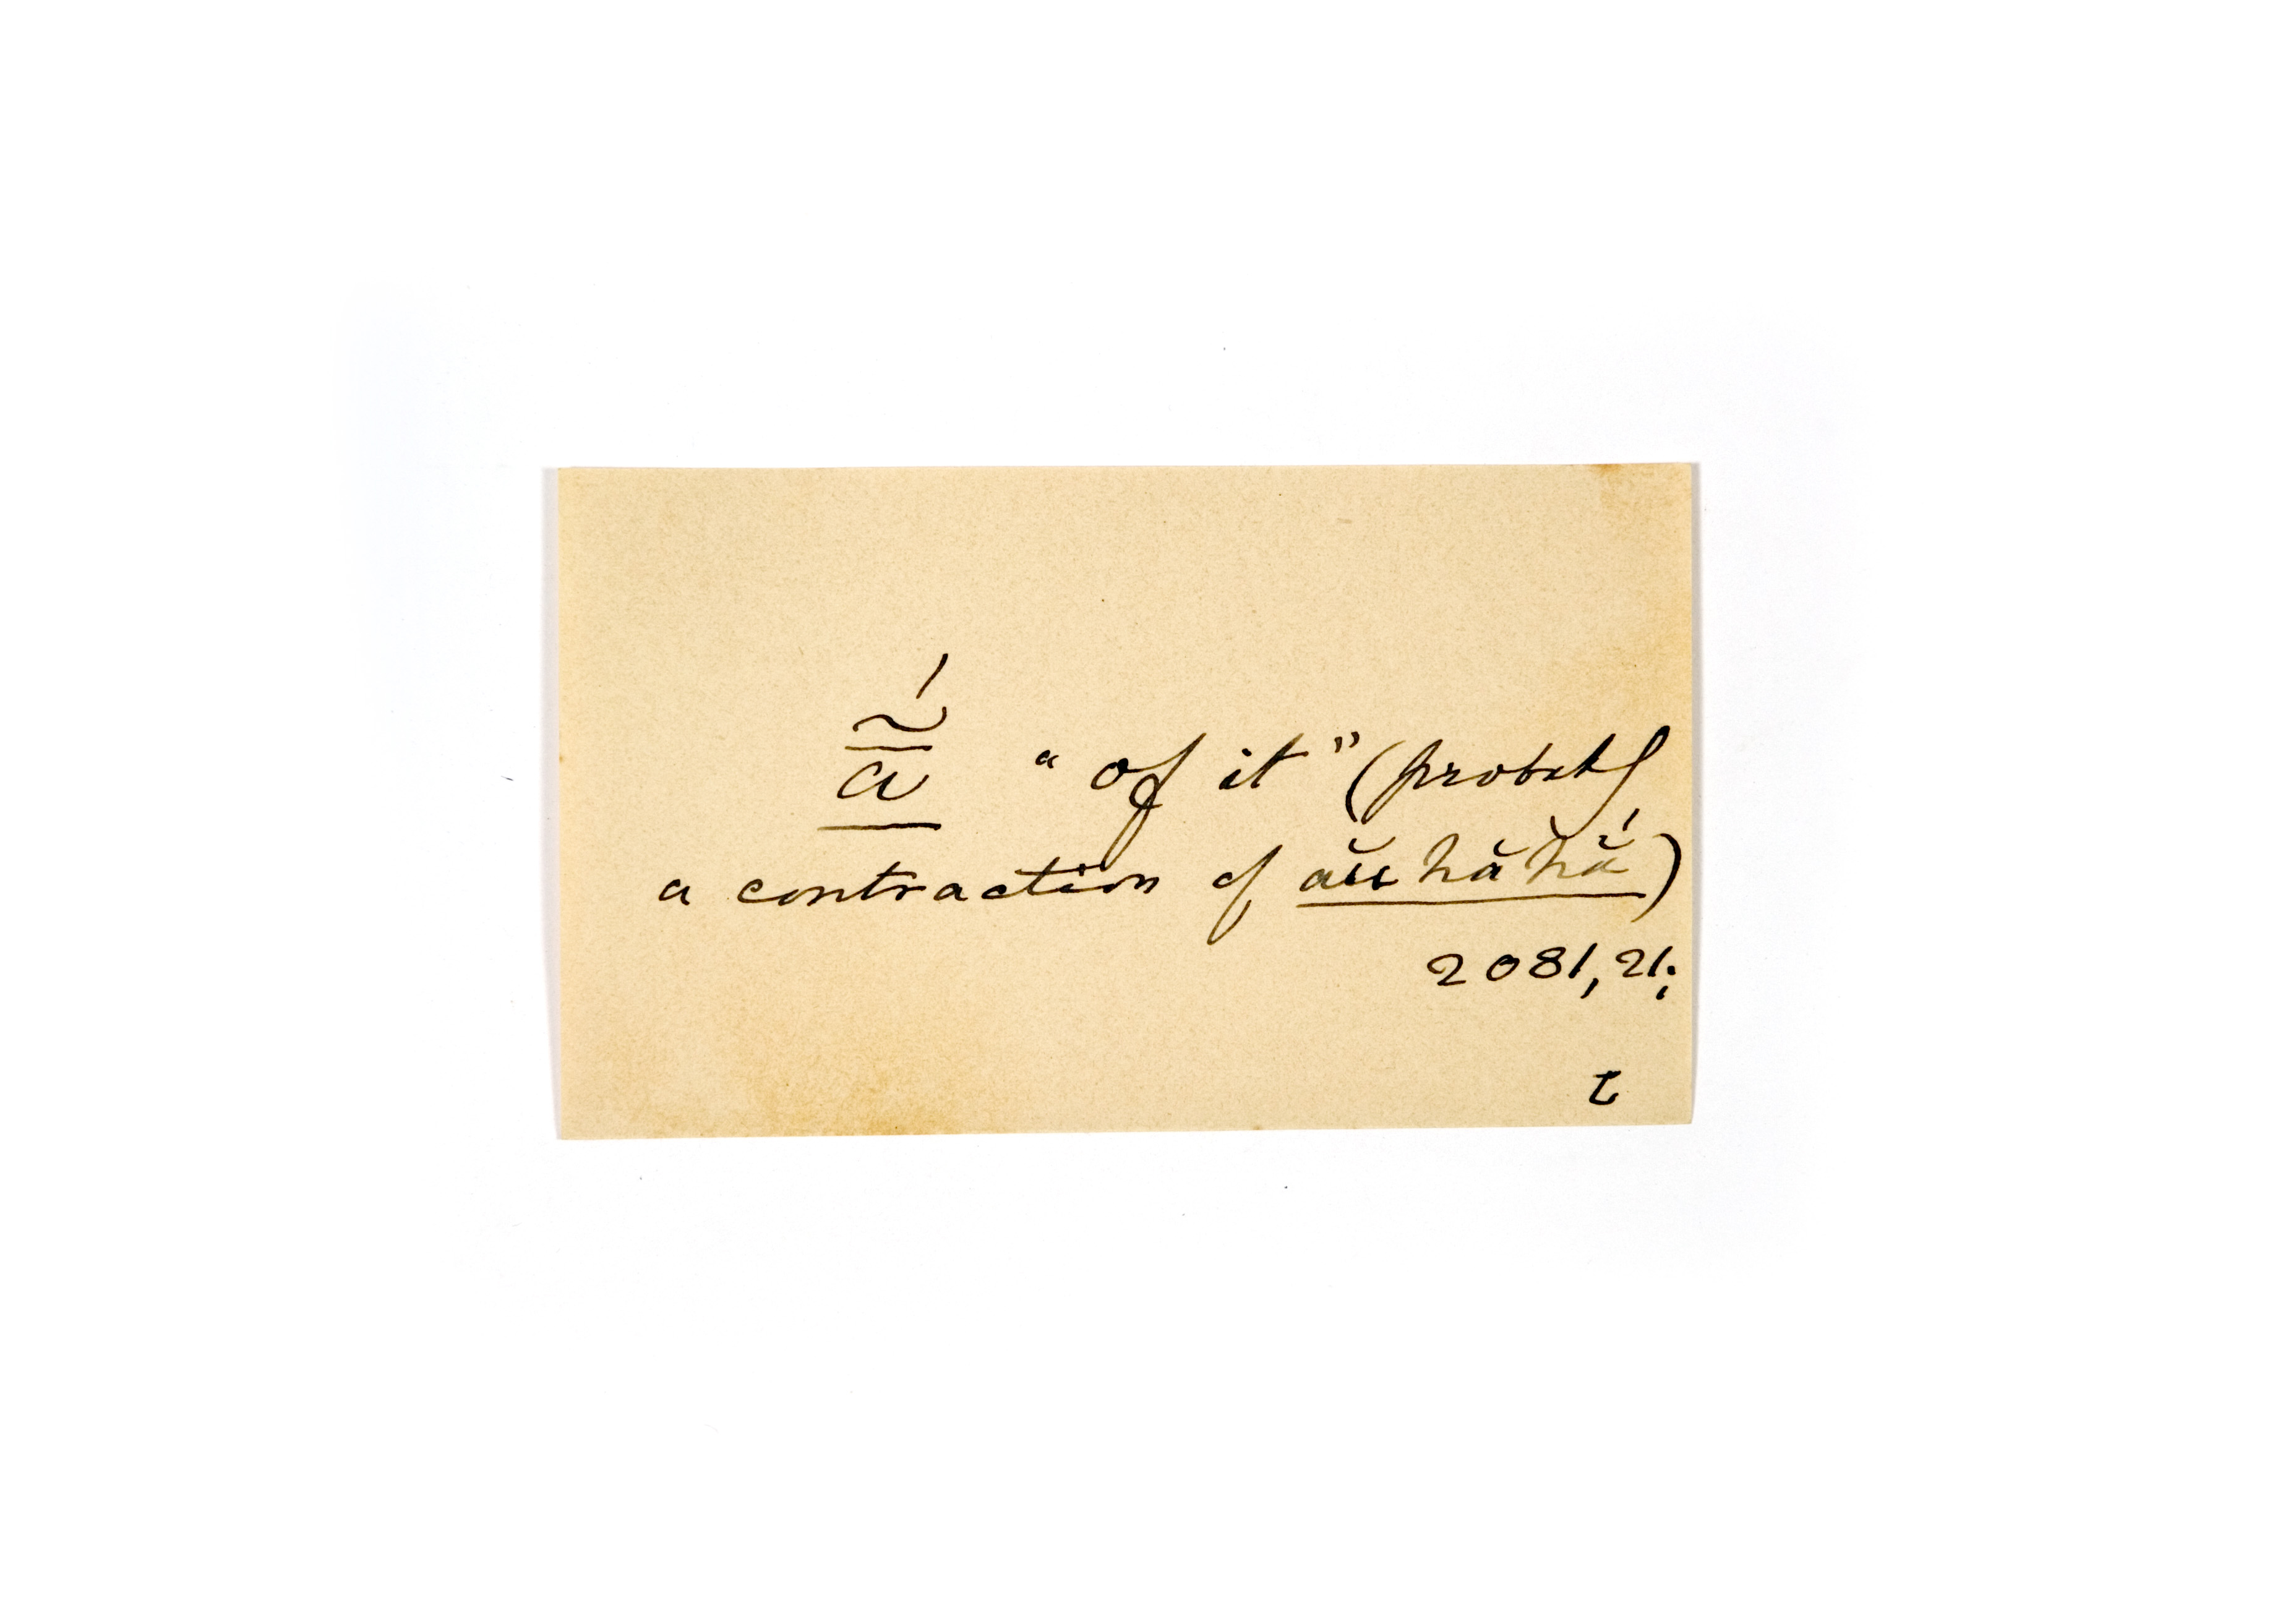 ā̰́ "of it" (probably
a contraction of ăɩɩhăhắ)
2081,21;
t